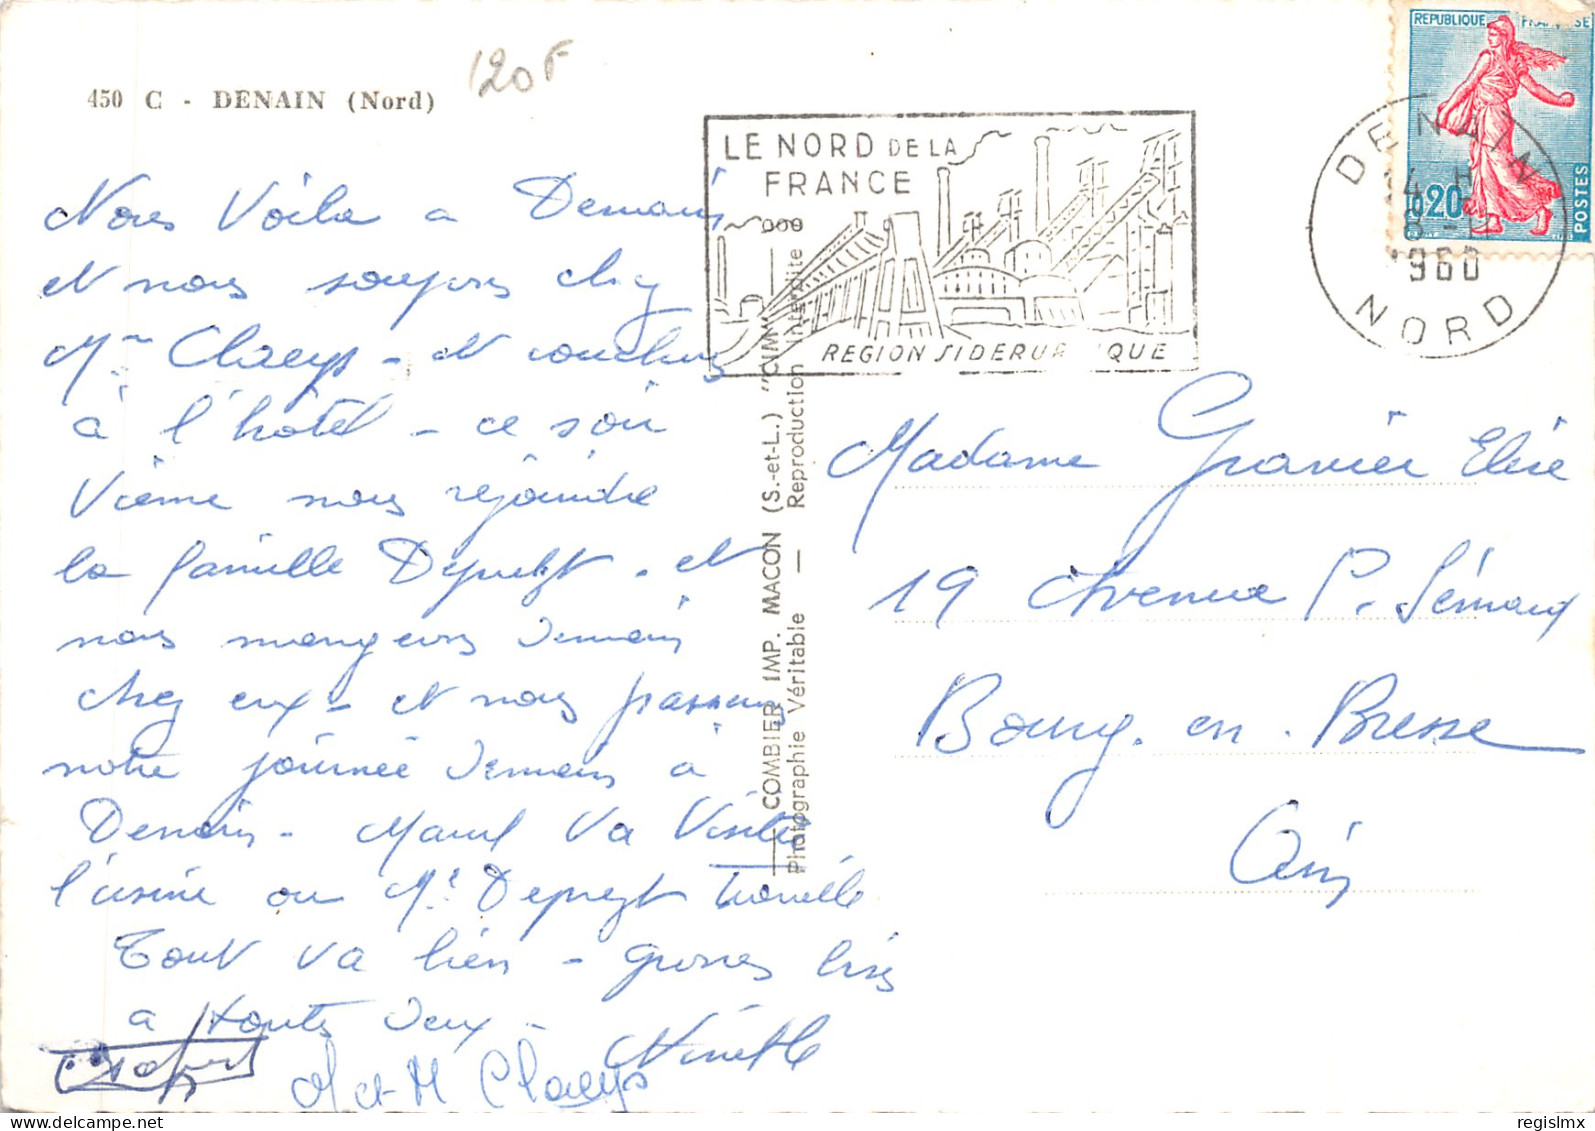 450 C - DENAIN (Nord)
120F
Nous Voila a Denain
et nous soupons chez
Mme Claeys - et couchons
à l'hôtel - ce soir
Vienne nous rejoindre
la famille Depretzt - et
nous mangeons demain
chez eux - et nous passons
notre journée demain à
Denain - Marcel va visiter
l'usine ou Mr Depretzt travaille
Tout va bien - grosses bises
a toutes deux -
Ninette
M et M Claeys
COMBIER IMP. MACON (S.-et-L.) "CIM"
Photographie Véritable — Reproduction interdite
LE NORD DE LA
FRANCE
REGION SIDERUR QUE
REPUBLIQUE FRANÇAISE
0,20
POSTES
DENAIN
14 H
8 - 11
1960
NORD
Madame Granier Elise
19 Avenue P. Sémard
Bourg. en. Bresse
Ain
regislmx